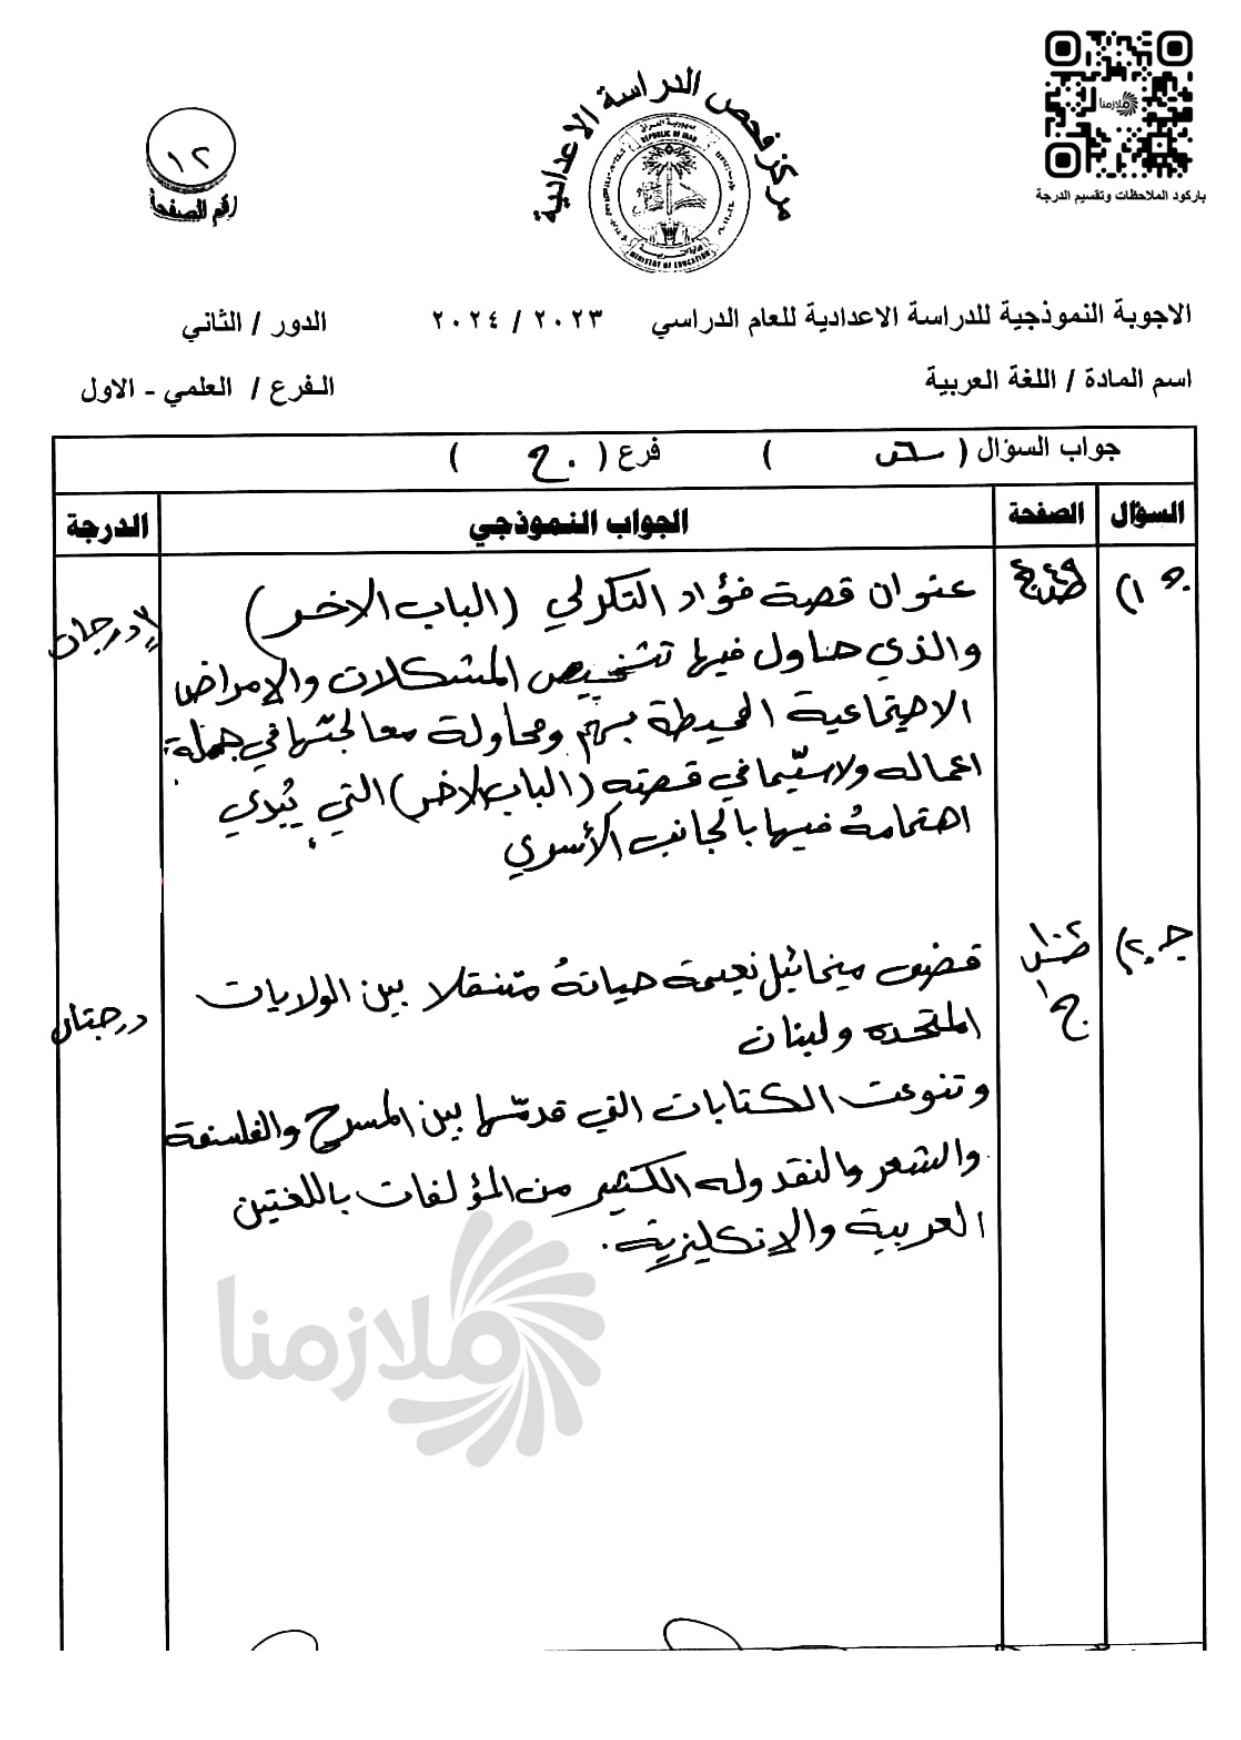 مركز فحص الدراسة الاعدادية
جمهورية العراق
REPUBLIC OF IRAQ
وزارة التربية
MINISTRY OF EDUCATION
ملازمنا
باركود الملاحظات وتقسيم الدرجة
١٢
رقم الصفحة
الاجوبة النموذجية للدراسة الاعدادية للعام الدراسي ٢٠٢٣ / ٢٠٢٤ الدور / الثاني
اسم المادة / اللغة العربية الفرع / العلمي - الاول
جواب السؤال ( ) فرع ( ج )
السؤال الصفحة الجواب النموذجي الدرجة
عنوان قصة فؤاد التكرلي (الباب الاخر)
والذي حناول فيها تشخيص المشكلات والامراض
الاجتماعية المحيطة بهم ومحاولة معالجتها في جملة
اعماله ولاسيّما في قصته (الباب الاخر) التي يُبدي
اهتمامهُ فيها بالجانب الأسري
٣ درجات
ج ٢)
ص ١٠٢
ج ١
قضى ميخائيل نعيمة حياتهُ متنقلا بين الولايات
المتحده ولبنان
وتنوعت الكتابات التي قدمّها بين المسرح والفلسفة
والشعر والنقد وله الكثير من المؤلفات باللغتين
العربية والانكليزية.
درجتان
ملازمنا